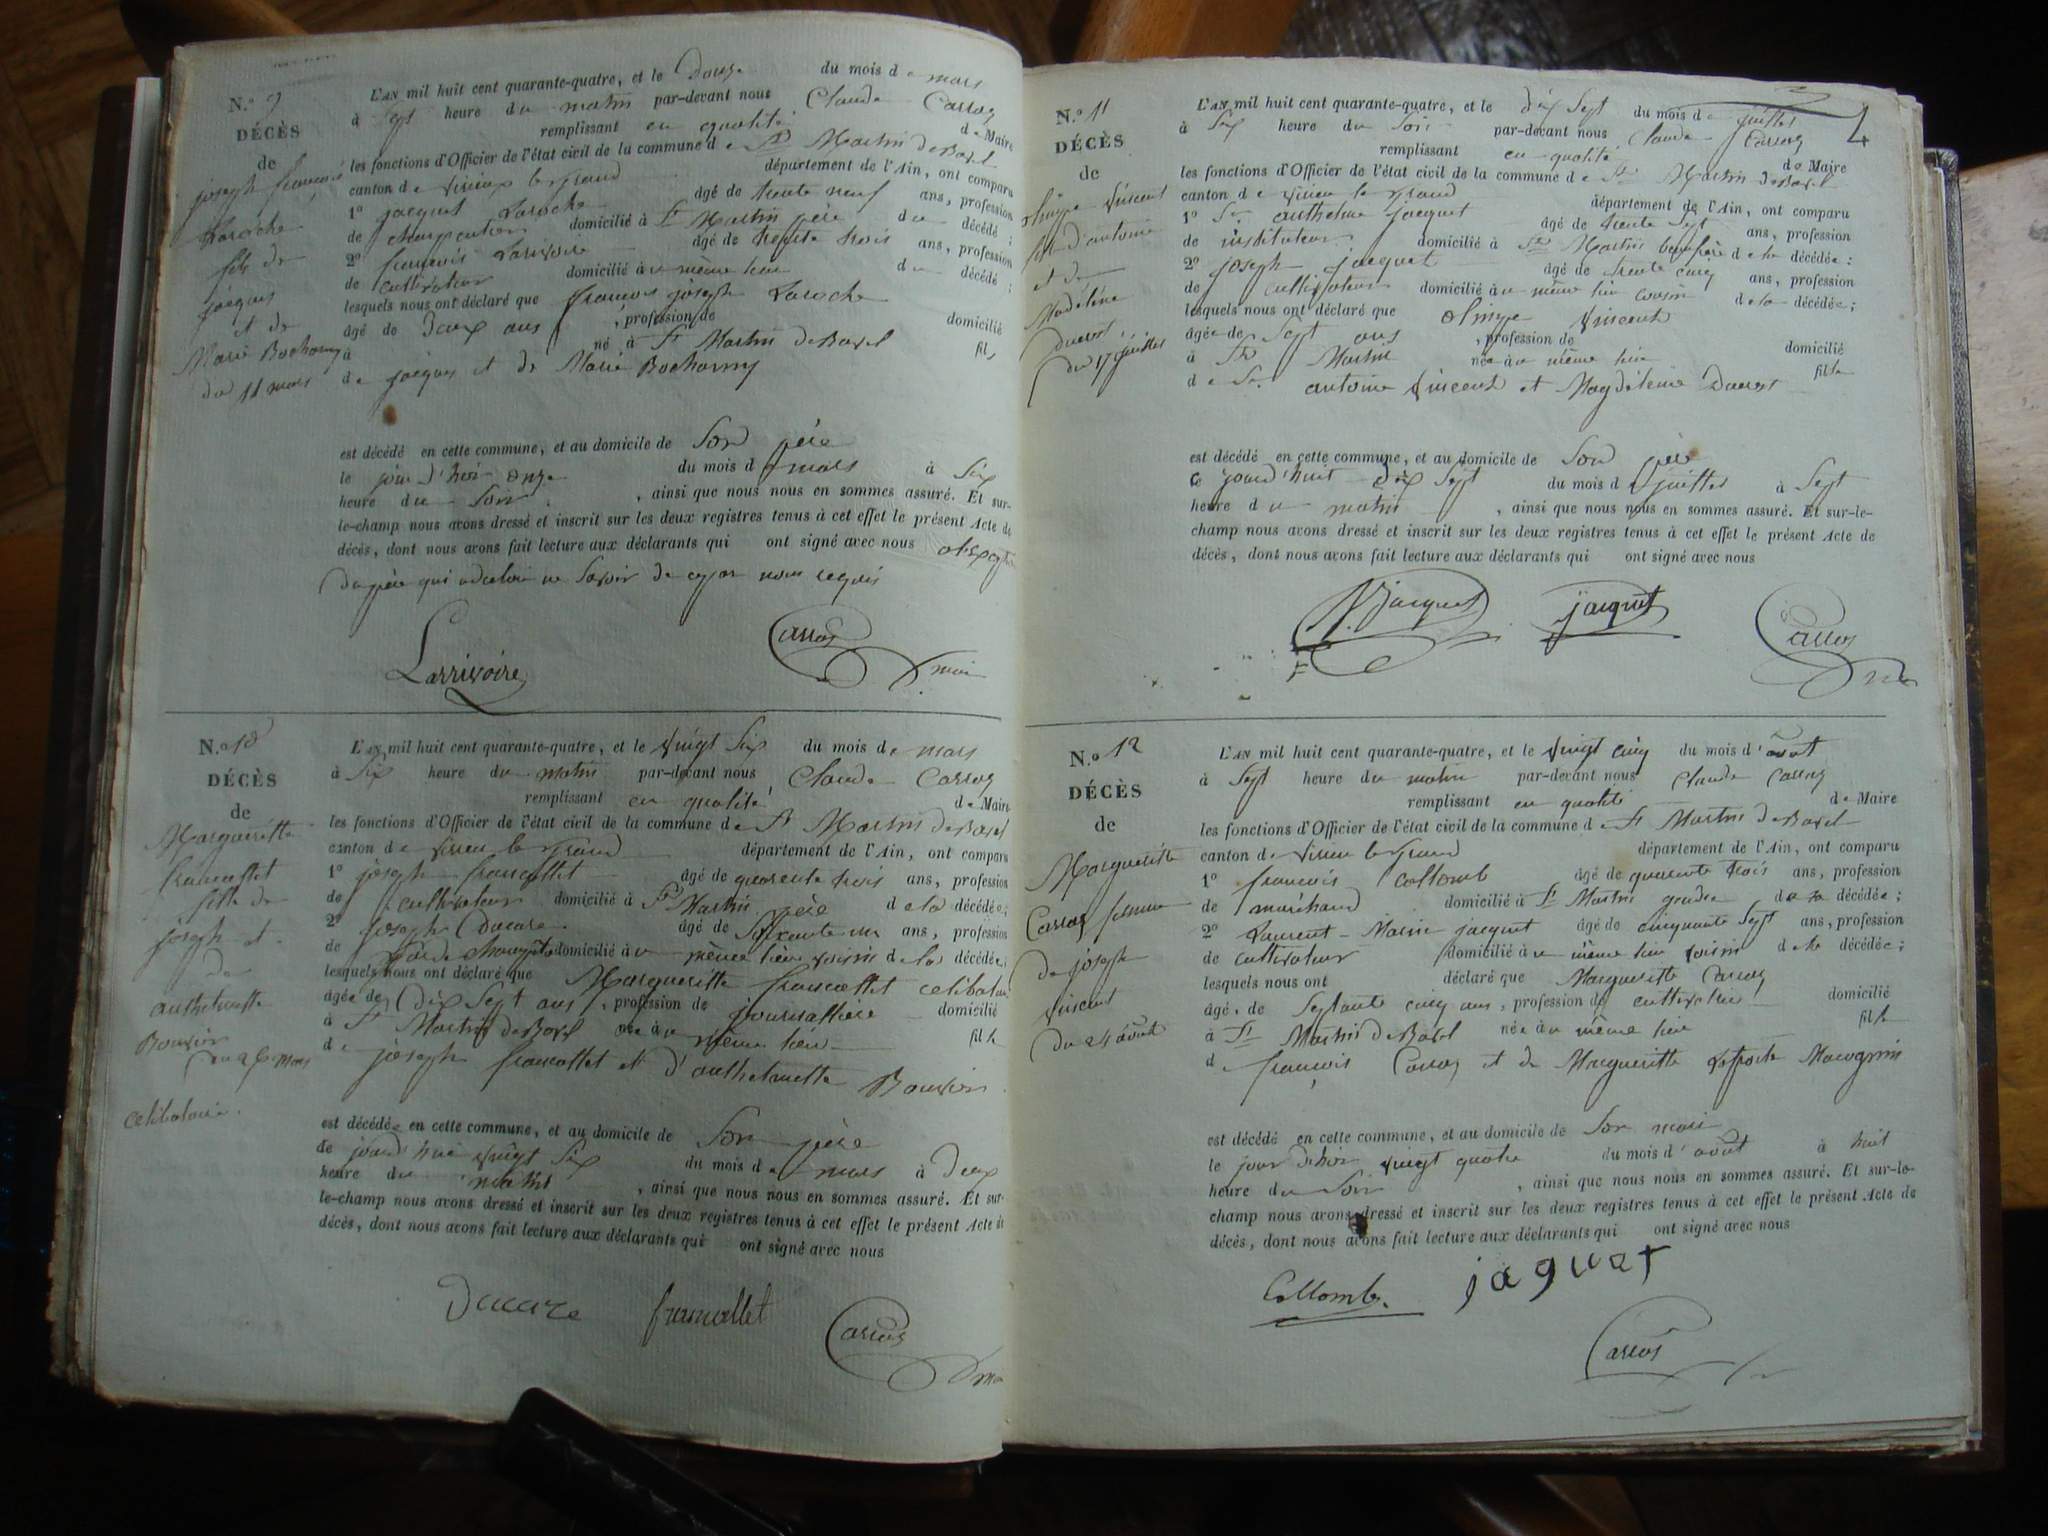 N.º 9
DÉCÈS
de
joseph françois
Laroche
fils de
jacques
et de
Marie Bocharny
du 11 mars
L'AN mil huit cent quarante-quatre, et le Douze du mois de mars
à sept heure du matin par-devant nous Claude Carroz
remplissant en qualité de Maire
les fonctions d'Officier de l'état civil de la commune de St Martin de Bavel
canton de virieu le grand département de l'Ain, ont comparu
1º jacques Laroche âgé de trente neuf ans, profession
de charpentier domicilié à St Martin père du décédé;
2º françois Larivoire âgé de trente trois ans, profession
de cultivateur domicilié à u même lieu du décédé;
lesquels nous ont déclaré que françois joseph Laroche
âgé de Deux ans, profession de domicilié
à né à St Martin de Bavel fils
de jacques et de Marie Bocharny
est décédé en cette commune, et au domicile de Son père
le jour d'hier onze du mois de mars à Six
heure du Soir, ainsi que nous nous en sommes assuré. Et sur-
le-champ nous avons dressé et inscrit sur les deux registres tenus à cet effet le présent Acte de
décès, dont nous avons fait lecture aux déclarants qui ont signé avec nous
du père qui a déclaré ne savoir de ce requis
Larrivoire Carroz maire
N.º 10
DÉCÈS
de
Margueritte
francallet
fille de
joseph et
de
anthelmette
Bouvier
du 26 mars
celibataire.
L'AN mil huit cent quarante-quatre, et le vingt Six du mois de mars
à Six heure du matin par-devant nous Claude Carroz
remplissant en qualité de Maire
les fonctions d'Officier de l'état civil de la commune de St Martin de Bavel
canton de virieu le grand département de l'Ain, ont comparu
1º joseph francallet âgé de quarente trois ans, profession
de cultivateur domicilié à St Martin père de la décédée;
2º joseph Ducare âgé de Soixante un ans, profession
de garde champêtre domicilié à u même lieu voisin de la décédée;
lesquels nous ont déclaré que Margueritte francallet celibataire
âgée de Dix Sept ans, profession de journallière domicilié
à St Martin de Bavel née à u même lieu fille
de joseph francallet et d'anthelmette Bouvier
est décédée en cette commune, et au domicile de Son père
de jourd'hui vingt Six du mois de mars à Deux
heure du matin, ainsi que nous nous en sommes assuré. Et sur-
le-champ nous avons dressé et inscrit sur les deux registres tenus à cet effet le présent Acte de
décès, dont nous avons fait lecture aux déclarants qui ont signé avec nous
Ducare francallet Carroz
4
N.º 11
DÉCÈS
de
olimpe vincent
fille d'antoine
et de
Madeleine
du 17 juillet
L'AN mil huit cent quarante-quatre, et le dix Sept du mois de juillet
à Six heure du Soir par-devant nous Claude Carroz
remplissant en qualité de Maire
les fonctions d'Officier de l'état civil de la commune de St Martin de Bavel
canton de virieu le grand département de l'Ain, ont comparu
1º Sr. anthelme jacquet âgé de trente Sept ans, profession
de instituteur domicilié à St Martin beaufrère de la décédée:
2º joseph jacquet âgé de trente cinq ans, profession
de cultivateur domicilié à u même lieu cousin de la décédée;
lesquels nous ont déclaré que olimpe vincent
âgée de Sept ans, profession de domicilié
à St Martin née à u même lieu fille
de Sr. antoine vincent et Magdeleine
est décédé en cette commune, et au domicile de Son père
ce jourd'huit dix Sept du mois de juillet à Sept
heure du matin, ainsi que nous nous en sommes assuré. Et sur-le-
champ nous avons dressé et inscrit sur les deux registres tenus à cet effet le présent Acte de
décès, dont nous avons fait lecture aux déclarants qui ont signé avec nous
Jacquet jacquet Carroz
N.º 12
DÉCÈS
de
Margueritte
Carroz femme
de joseph
vincent
du 24 août
L'AN mil huit cent quarante-quatre, et le vingt cinq du mois d'août
à Sept heure du matin par-devant nous Claude Carroz
remplissant en qualité de Maire
les fonctions d'Officier de l'état civil de la commune de St Martin de Bavel
canton de virieu le grand département de l'Ain, ont comparu
1º françois Collomb âgé de quarente trois ans, profession
de marchand domicilié à St Martin gendre de la décédée;
2º Laurent-Marin jacquet âgé de cinquante Sept ans, profession
de cultivateur domicilié à u même lieu voisin de la décédée;
lesquels nous ont déclaré que Margueritte Carroz
âgé. de Septante cinq ans, profession de cultivatrice domicilié
à St Martin de Bavel née à u même lieu fille
de françois Carroz et de Margueritte
est décédé en cette commune, et au domicile de Son mari
le jour d'hier vingt quatre du mois d'août à huit
heure du Soir, ainsi que nous nous en sommes assuré. Et sur-le-
champ nous avons dressé et inscrit sur les deux registres tenus à cet effet le présent Acte de
décès, dont nous avons fait lecture aux déclarants qui ont signé avec nous
Collomb. jaquet
Carroz